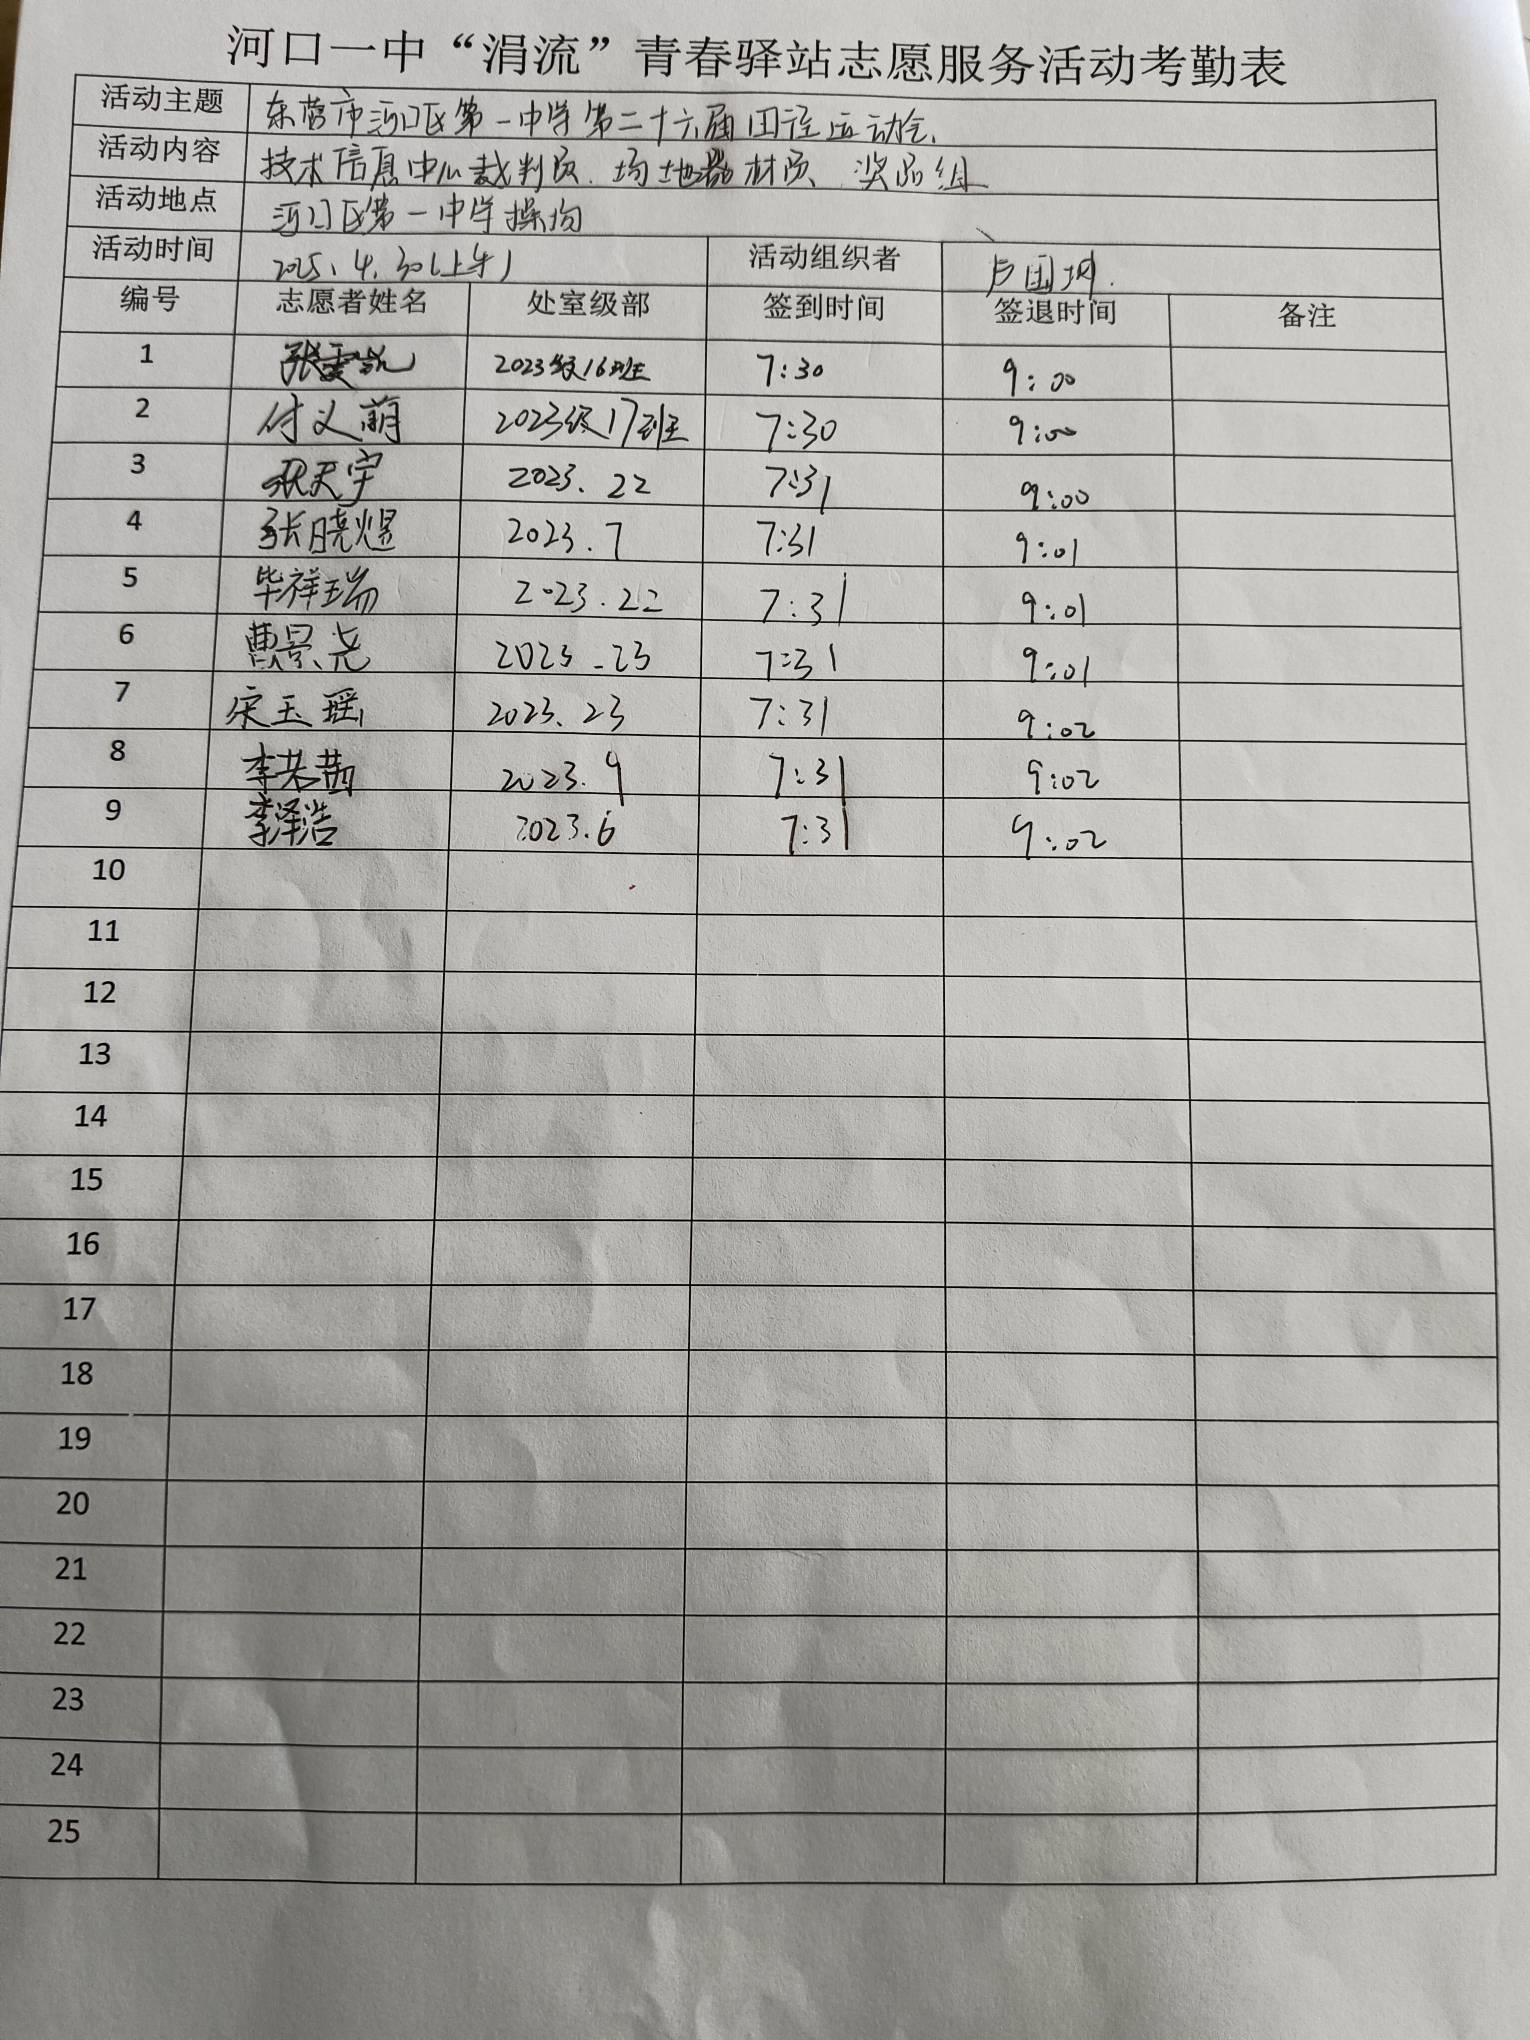 河口一中“涓流”青春驿站志愿服务活动考勤表
活动主题 东营市河口区第一中学第二十六届田径运动会.
活动内容 技术信息中心裁判员、场地器材员、奖品组
活动地点 河口区第一中学操场
活动时间 2025.4.30(上午) 活动组织者 卢国
编号 志愿者姓名 处室级部 签到时间 签退时间 备注
1 张雯凯 2023级16班 7:30 9:00
2 付义萌 2023级17班 7:30 9:00
3 张天宇 2023.22 7:31 9:00
4 张晓煜 2023.7 7:31 9:01
5 毕祥瑞 2023.22 7:31 9:01
6 曹景尧 2023.23 7:31 9:01
7 宋玉瑶 2023.23 7:31 9:02
8 李茜 2023.9 7:31 9:02
9 李泽浩 2023.6 7:31 9:02
10
11
12
13
14
15
16
17
18
19
20
21
22
23
24
25